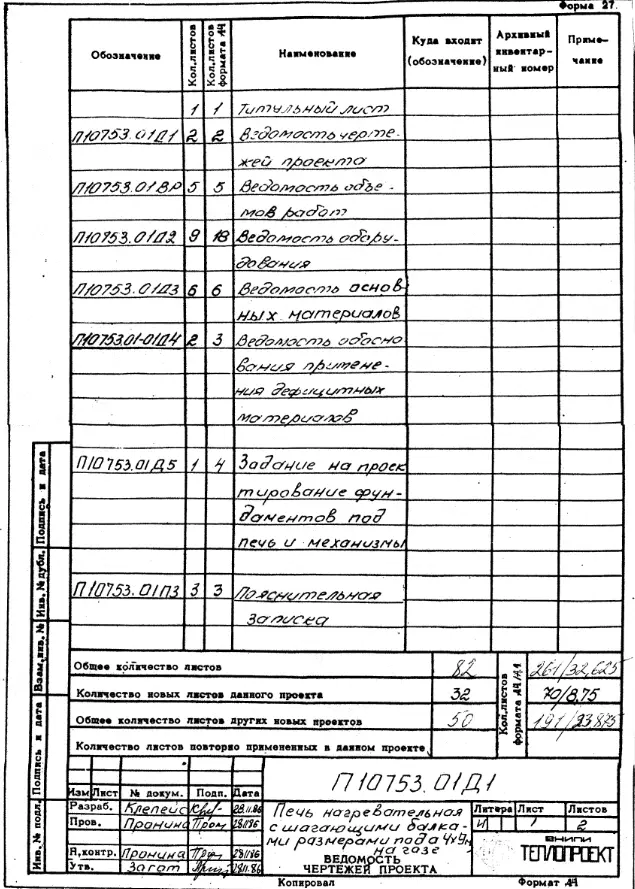 Форма 27.
Обозначение
Кол.листов
Кол.листов формата А4
Наименование
Куда входит (обозначение)
Архивный инвентарный номер
Примечание
1 1 Титульный лист
П10753.01Д1 2 2 Ведомость черте-
жей проекта
П10753.01ВР 5 5 Ведомость объе-
мов работ
П10753.01Д2 9 18 Ведомость обору-
дования
П10753.01Д3 6 6 Ведомость основ-
ных материалов
П10753.01-01Д4 2 3 Ведомость обосно
вания примене-
ния дефицитных
материалов
П10753.01Д5 1 4 Задание на проек
тирование фун-
даментов под
печь и механизмы
П10753.01ПЗ 3 3 Пояснительная
записка
Общее количество листов 82
Количество новых листов данного проекта 32
Общее количество листов других новых проектов 50
Количество листов повторно примененных в данном проекте
Кол.листов формата А4/А1
261/32,625
70/8,75
191/23.875
Инв. № подл.
Подпись и дата
Взам.инв. №
Инв. № дубл.
Подпись и дата
Изм Лист № докум. Подп. Дата
Разраб. Клепейс 28.11.86
Пров. Пронина 28.11.86
Н.контр. Пронина 28.11.86
Утв. Загат 28.11.86
П10753.01Д1
Печь нагревательная
с шагающими балка-
ми размерами пода 4х9м
на газе
ВЕДОМОСТЬ
ЧЕРТЕЖЕЙ ПРОЕКТА
Литера Лист Листов
И 1 2
ВНИПИ
ТЕПЛОПРОЕКТ
Копировал
Формат А4